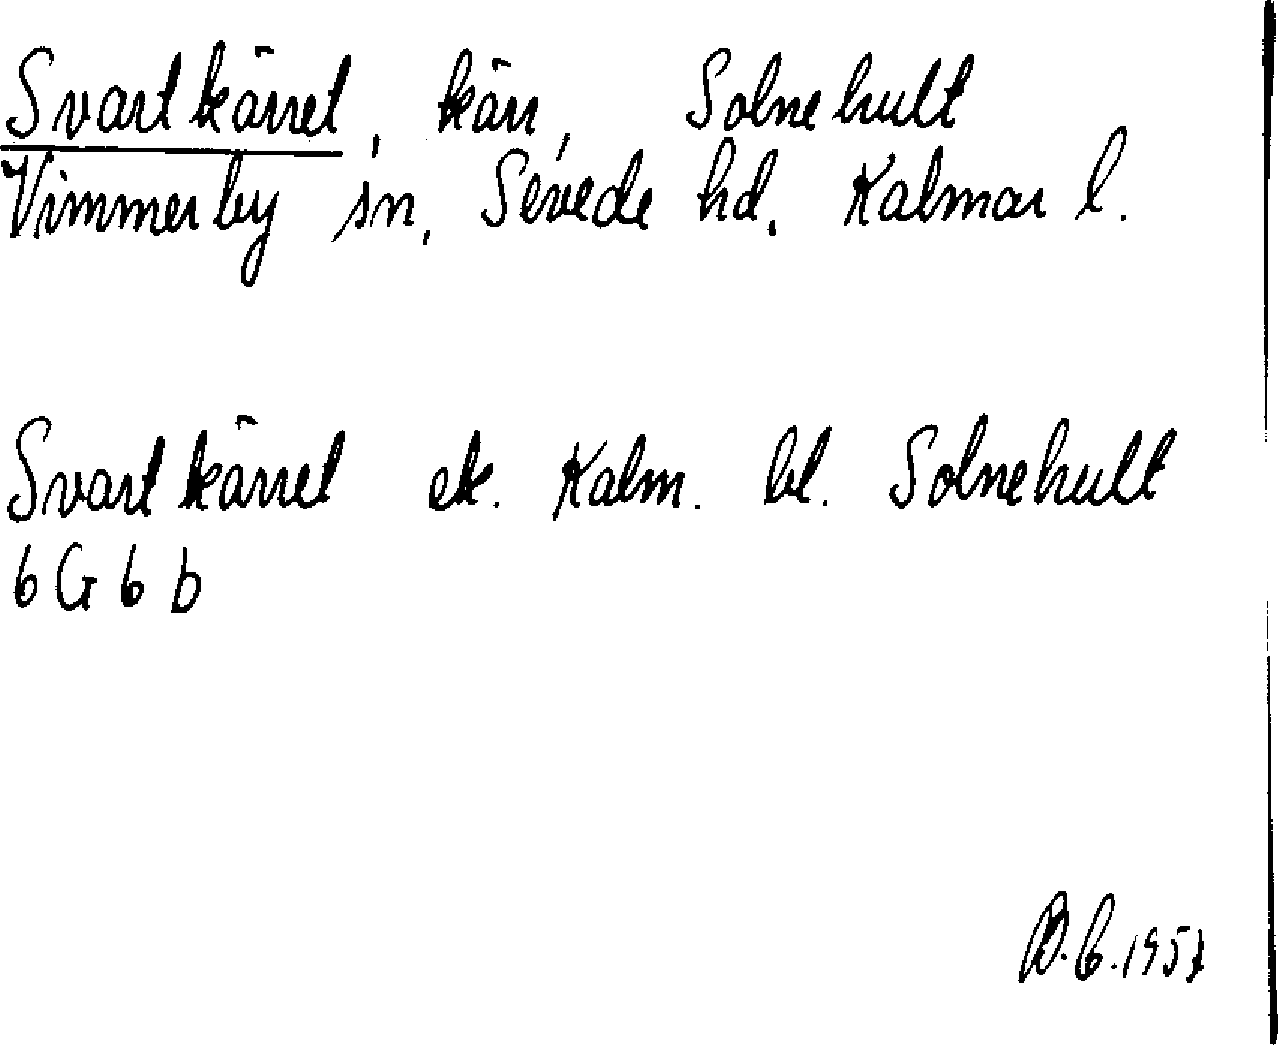 Svartkärret, kärr, Solnehult
Vimmerby sn, Sevede hd. Kalmar l.
Svartkärret ek. Kalm. bl. Solnehult
6 G 6 b